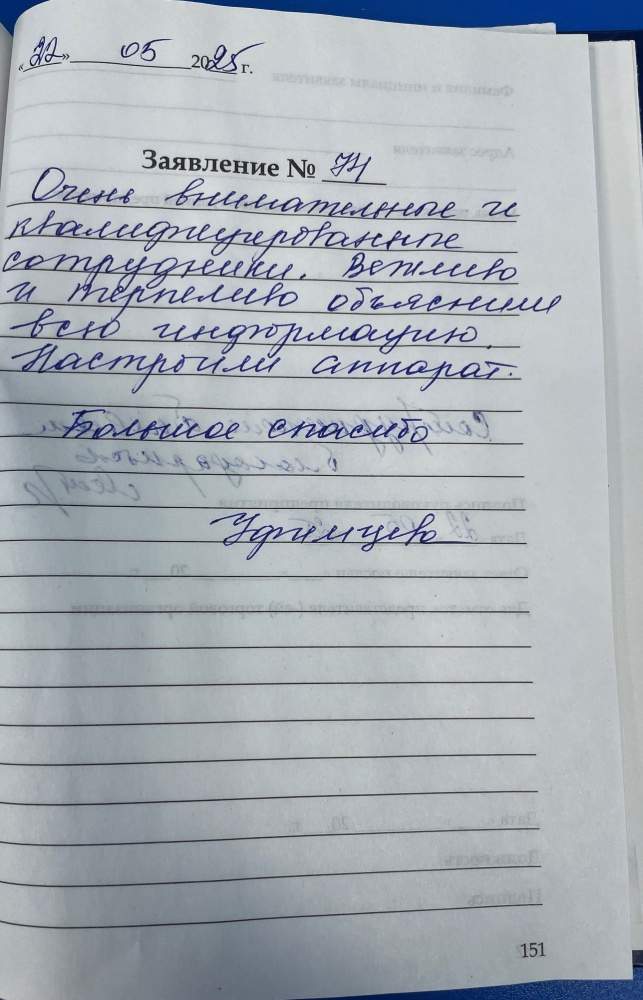 «22» 05 2025 г.
Заявление № 74
Очень внимательные и
квалифицированные
сотрудники. Вежливо
и терпеливо объяснили
всю информацию.
Настроили аппарат.
Большое спасибо
Уфимцева
151